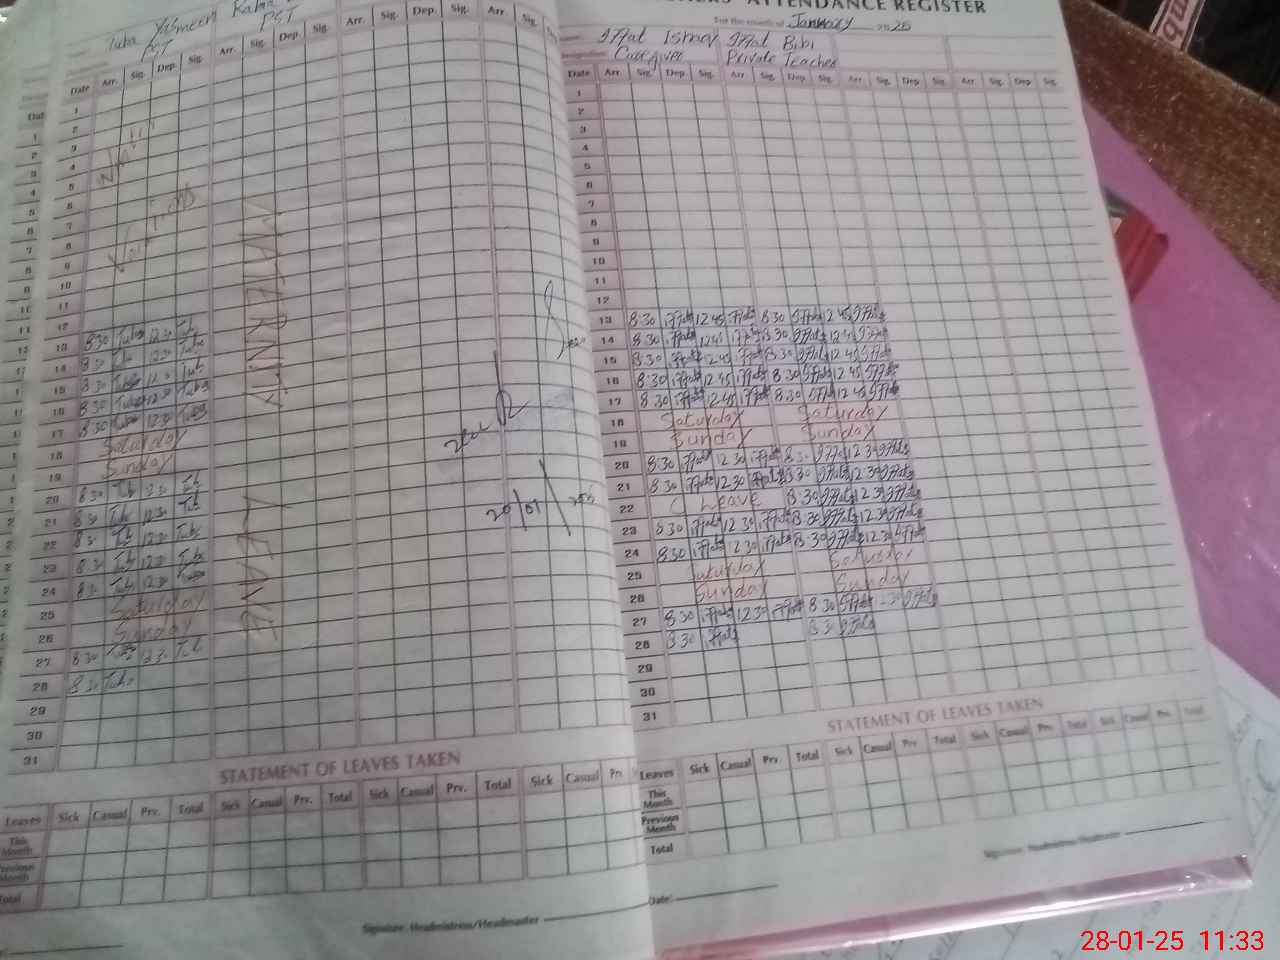 Tuba Yasmeen
PST PST
Date Arr. Sig. Dep. Sig. Arr. Sig. Dep. Sig. Arr. Sig. Dep. Sig. Arr. Sig.
1
2
3
4
5
6
7
8
9
10
11
12
13 8:30 Tuba 12:30
14 8:30 12:30 Tuba
15 8:30 Tuba 12:30 Tub
16 8:30 Tuba 12:30 Tuba
17 8:30 Tuba 12:30 Tuba
18 Saturday
19 Sunday
20 8:30 Tub 12:30 Tub
21 8:30 Tub 12:30 Tub
22 8:30 Tub 12:30 Tuba
23 8:30 Tub 12:30 Tuba
24 8:30 Tub 12:30
25 Saturday
26 Sunday
27 8:30 12:30 Tub
28 8:30 Tuba
29
30
31
MATERNITY LEAVE
STATEMENT OF LEAVES TAKEN
Leaves Sick Casual Prv. Total Sick Casual Prv. Total Sick Casual Prv. Total Sick Casual Prv.
This Month
Previous Month
Total
Signature Headmistress/Headmaster
ATTENDANCE REGISTER
For the month of January 2025
Iffat Bibi
Private Teacher
Date Arr. Sig. Dep. Sig. Arr. Sig. Dep. Sig. Arr. Sig. Dep. Sig. Arr. Sig. Dep. Sig.
1
2
3
4
5
6
7
8
9
10
11
12
13 8:30 Iffat 12:45 Iffat 8:30 Iffat 12:45 Iffat
14 8:30 Iffat 12:45 Iffat 8:30 Iffat 12:45 Iffat
15 8:30 Iffat 12:45 Iffat 8:30 Iffat 12:45 Iffat
16 8:30 Iffat 12:45 Iffat 8:30 Iffat 12:45 Iffat
17 8:30 Iffat 12:45 Iffat 8:30 Iffat 12:45 Iffat
18 Saturday Saturday
19 Sunday Sunday
20 8:30 Iffat 12:30 Iffat 8:30 Iffat 12:30 Iffat
21 8:30 Iffat 12:30 Iffat 8:30 Iffat 12:30 Iffat
22 C Leave 8:30 Iffat 12:30 Iffat
23 8:30 Iffat 12:30 Iffat 8:30 Iffat 12:30 Iffat
24 8:30 Iffat 12:30 Iffat 8:30 Iffat 12:30 Iffat
25 Saturday Saturday
26 Sunday Sunday
27 8:30 Iffat 12:30 Iffat 8:30 Iffat 12:30 Iffat
28 8:30 Iffat 8:30 Iffat
29
30
31
STATEMENT OF LEAVES TAKEN
Leaves Sick Casual Prv. Total Sick Casual Prv. Total Sick Casual Prv. Total Sick Casual Prv. Total
This Month
Previous Month
Total
Signature Headmistress/Headmaster
Date:
28-01-25 11:33